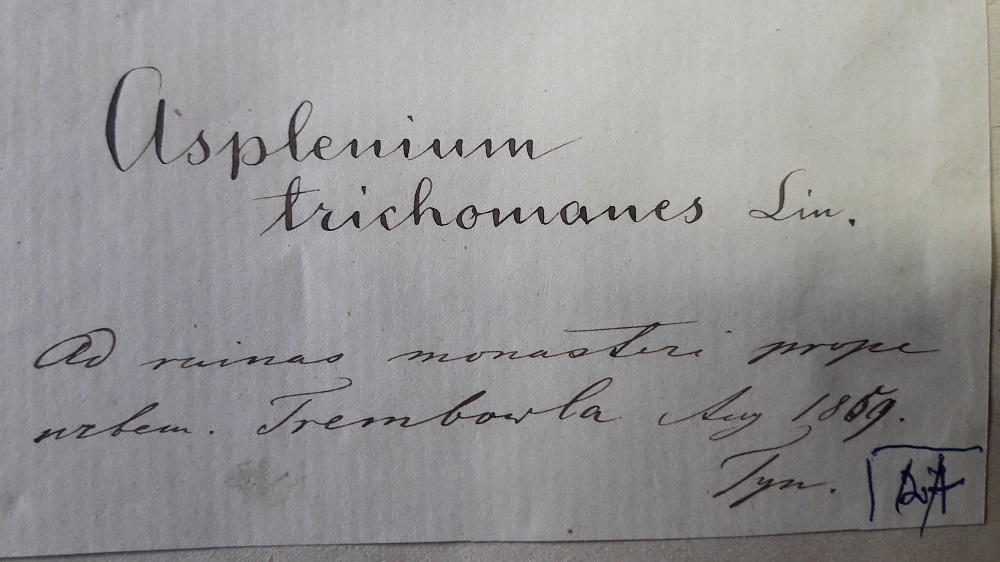 Asplenium
trichomanes Lin.
Ad ruinas monasteri prope
urbem. Trembowla Aug 1869.
Tyn.